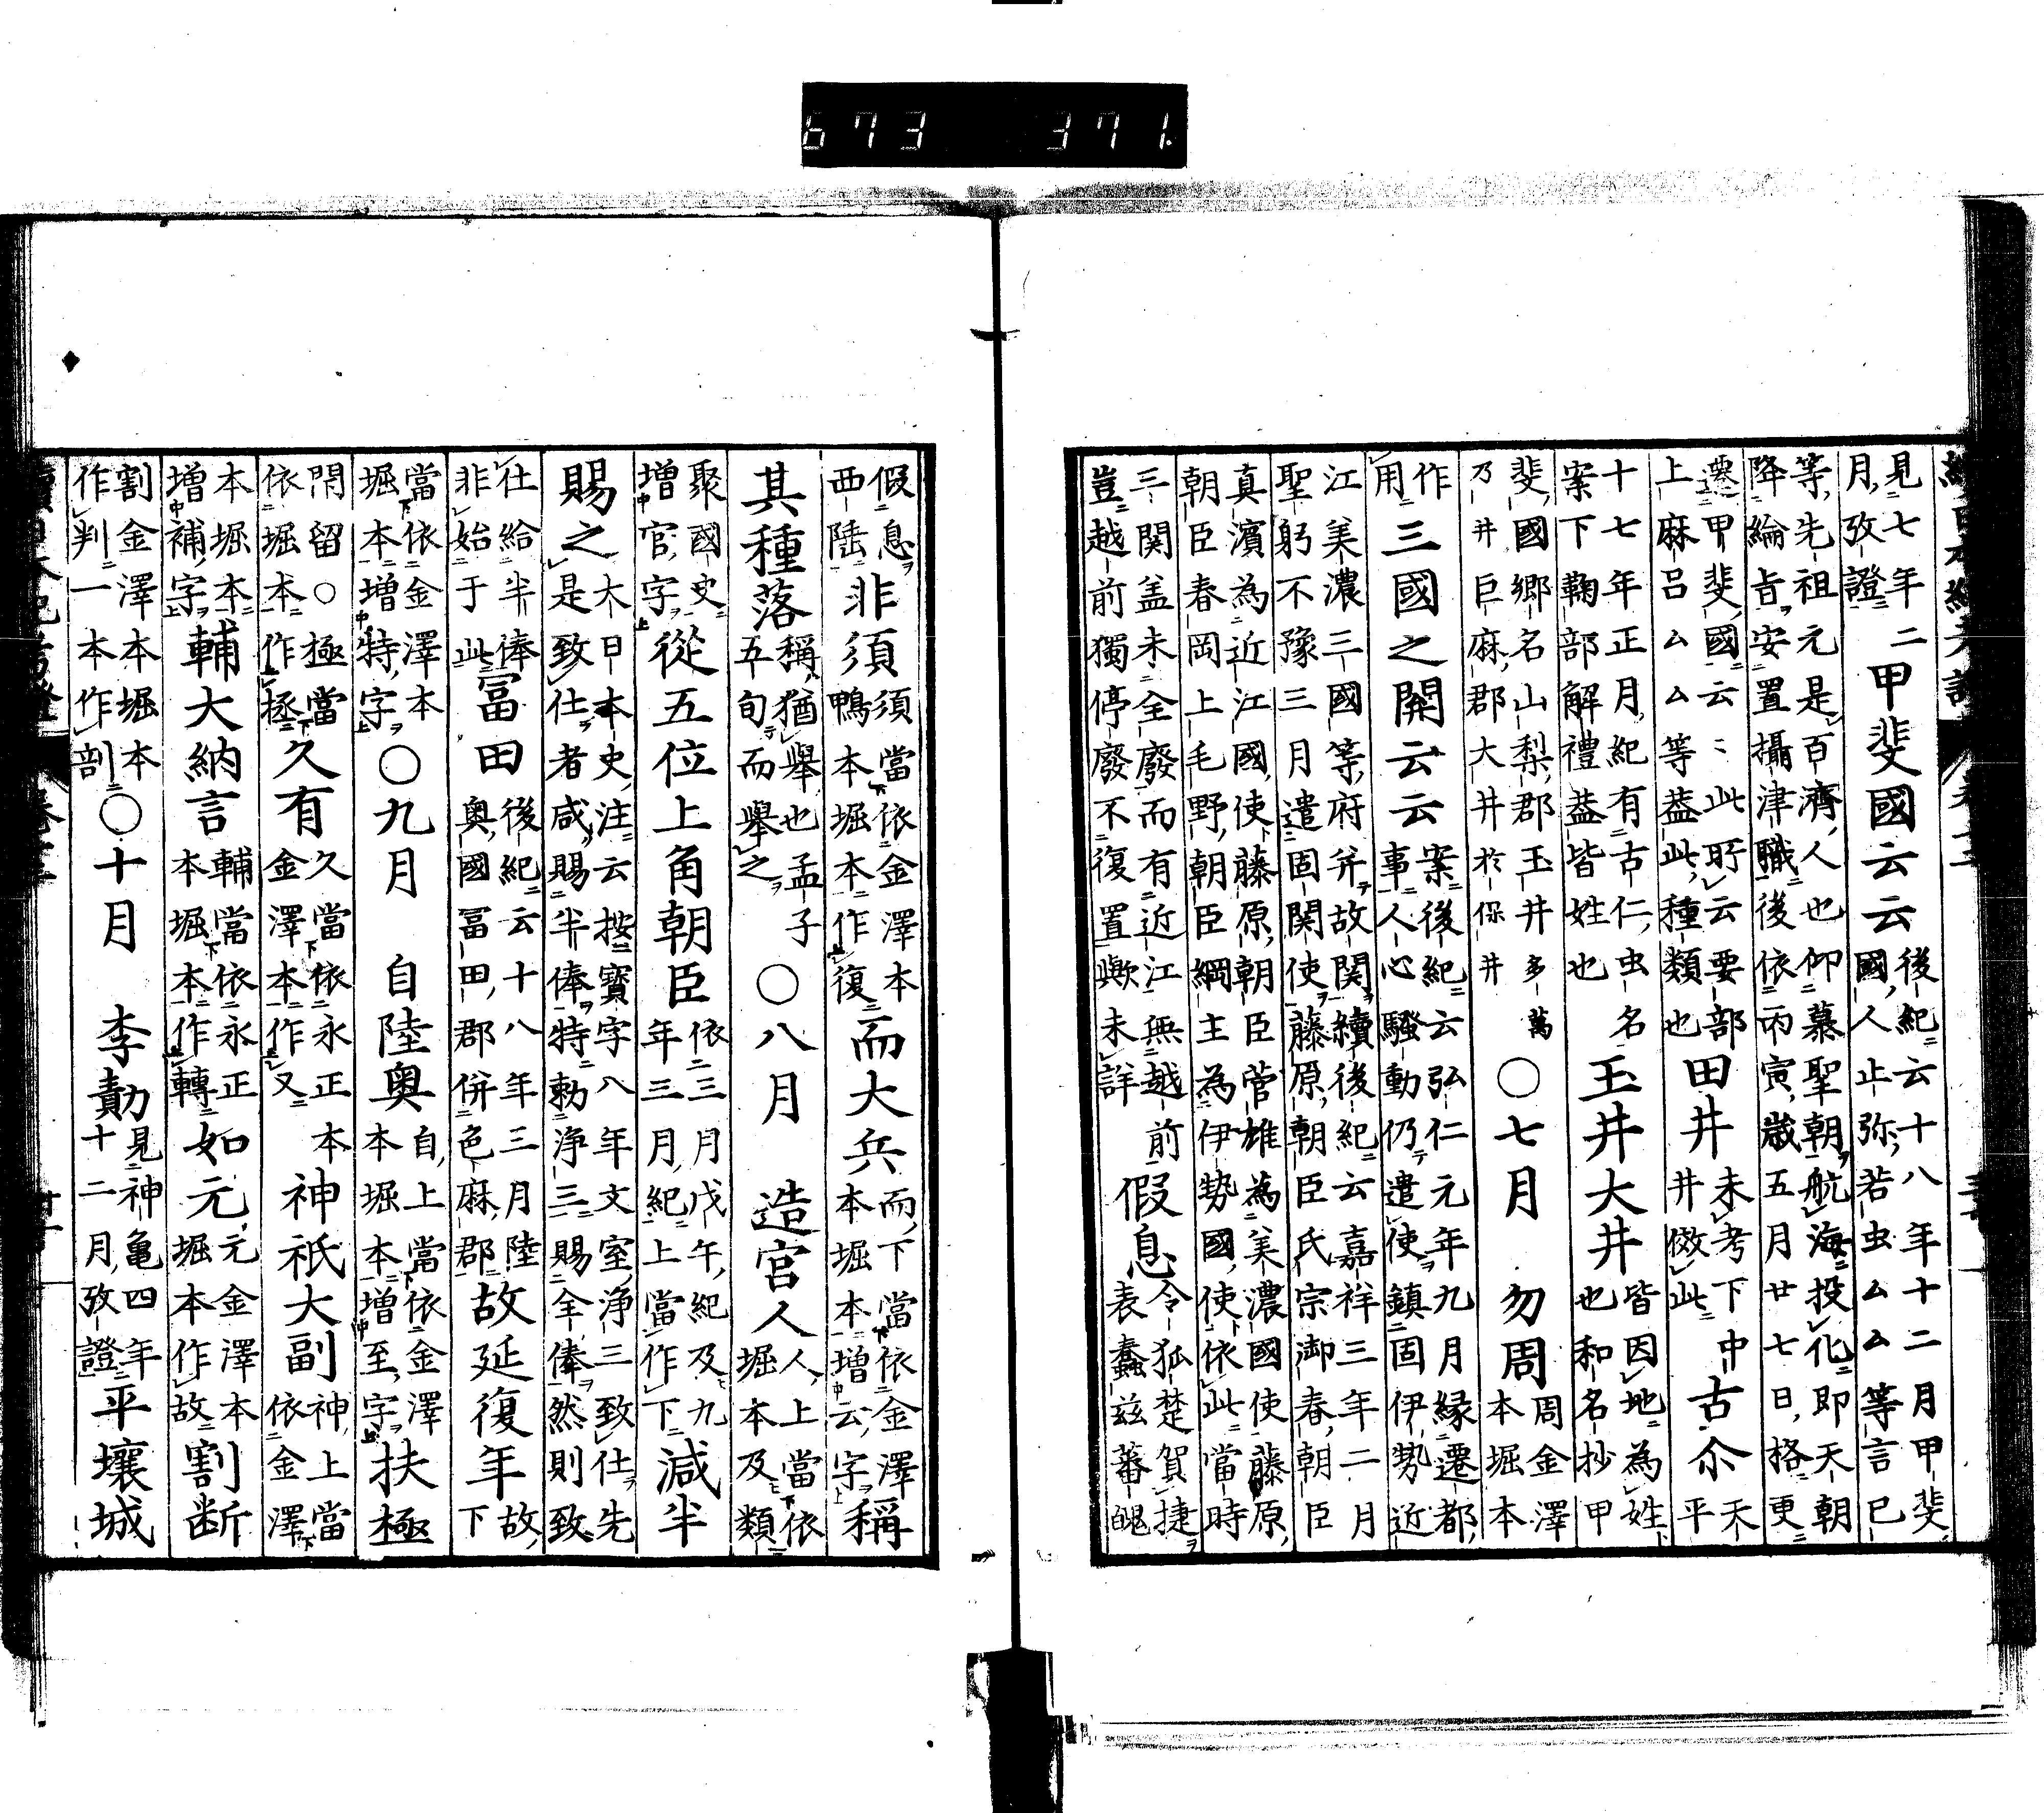 673 371.
見七年二
月攷證
甲斐國云云
後紀云十八年十二月甲斐
國人止弥若虫ムム等言已
等先祖元是百濟人也仰慕聖朝航海投化即天朝
降綸旨安置攝津職後依丙寅歲五月廿七日格更
遷甲斐國云云此所云要部
上麻呂ムム等蓋此種類也
田井
未考下中
井傚此
古尒
天
平
十七年正月紀有古仁虫名
案下鞠部解禮蓋皆姓也
玉井大井
皆因地為姓
也和名抄甲
斐國鄉名山梨郡玉井多萬
乃井巨麻郡大井於保井
○七月 勿周
周金澤
本堀本
作
用
三國之関云云
案後紀云弘仁元年九月緣遷都
事人心騷動仍遣使鎮固伊勢近
江美濃三國等府并故関續後紀云嘉祥三年二月
聖躬不豫三月遣固関使藤原朝臣氏宗御春朝臣
真濱為近江國使藤原朝臣菅雄為美濃國使藤原
朝臣春岡上毛野朝臣綱主為伊勢國使依此當時
三関盖未全廢而有近江無越前
豈越前獨停廢不復置歟未詳
假息
令狐楚賀捷
表蠢茲蕃醜
假息
西陸
非須
須當依金澤本
鴨本堀本作復
而大兵
而下當依金澤
本堀本增云字
稱
其種落
稱猶舉也孟子
五旬而舉之
○八月 造宮人
人上當依
堀本及類
聚國史
增官字
從五位上角朝臣
依三月戊午紀及九
年三月紀上當作下
減半
賜之
大日本史注云按寶字八年文室淨三致仕先
是致仕者咸賜半俸特勅淨三賜全俸然則致
仕給半俸
非始于此
冨田
後紀云十八年三月陸
奧國冨田郡併色麻郡
故延復年
故
下
當依金澤本
堀本增特字
○九月 自陸奧
自上當依金澤
本堀本增至字
扶極
閇留○極當
依堀本作拯
久有
久當依永正本
金澤本作又
神祇大副
神上當
依金澤
本堀本
增補字
輔大納言
輔當依永正
本堀本作轉
如元
元金澤本
堀本作故
割断
割金澤本堀本
作判一本作剖
○十月 李勣
見神亀四年
十二月攷證
平壤城